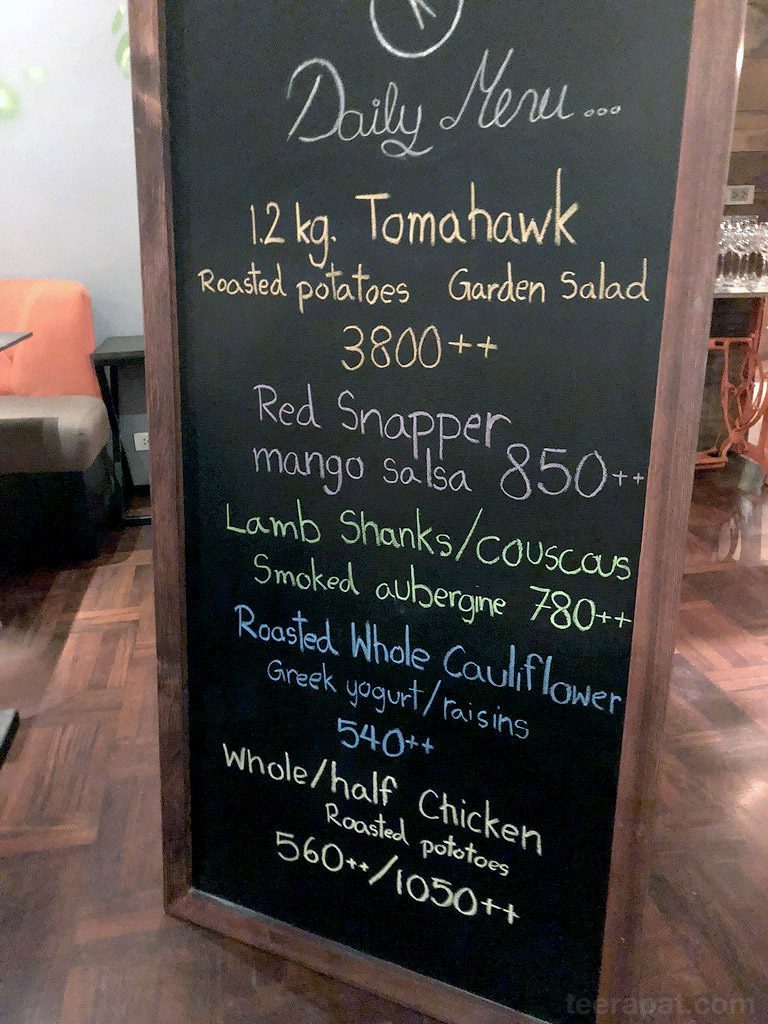 K
Daily Menu...
1.2 kg. Tomahawk
Roasted potatoes Garden Salad
3800++
Red Snapper
mango salsa 850++
Lamb Shanks/couscous
Smoked aubergine 780++
Roasted Whole Cauliflower
Greek yogurt/raisins
540++
Whole/half Chicken
Roasted pototoes
560++/1050++
teerapat.com